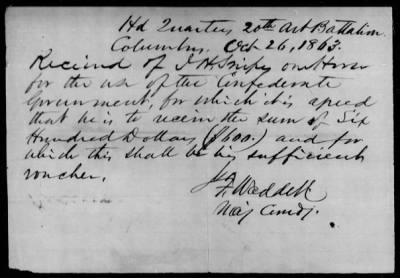 Hd Quarters 20th Art Battalion
Columbus. Oct 26, 1863.
Received of J. H. Snipes one Horse
for the use of the Confederate
Government, for which it is agreed
that he is to receive the sum of Six
Hundred Dollars ($600.) and for
which this shall be his sufficient
voucher.
Waddell
Maj Comdg.